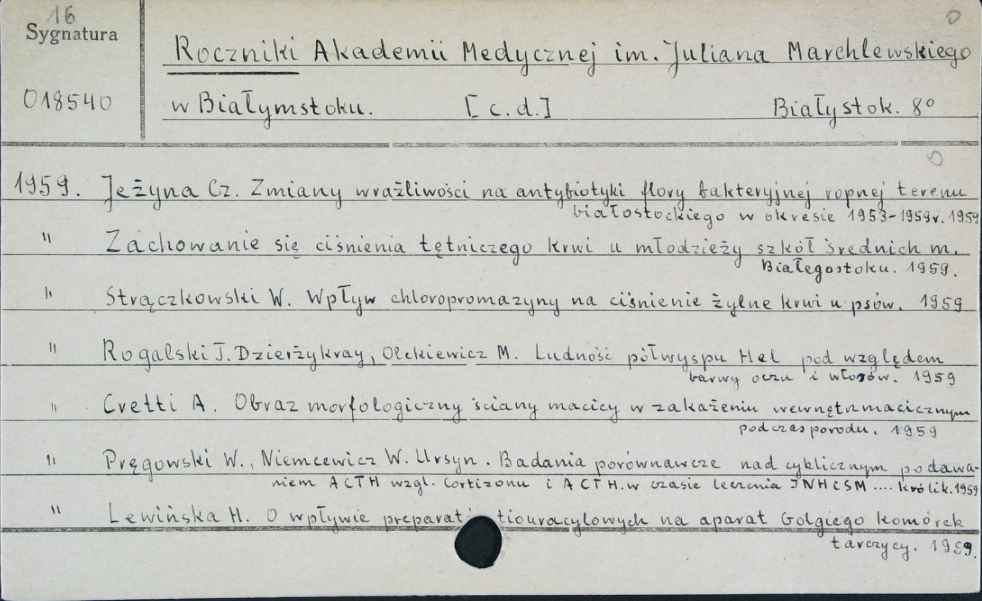 16
Sygnatura
018540
Roczniki Akademii Medycznej im. Juliana Marchlewskiego
w Białymstoku. [c.d.] Białystok. 8°
1959. Jeżyna Cz. Zmiany wrażliwości na antybiotyki flory bakteryjnej ropnej terenu
białostockiego w okresie 1953-1959r. 1959
" Zachowanie się ciśnienia tętniczego krwi u młodzieży szkół średnich m.
Białegostoku. 1959.
" Strączkowski W. Wpływ chloropromazyny na ciśnienie żylne krwi u psów. 1959
" Rogalski T. Dzierżykray, Olekiewicz M. Ludność półwyspu Hel pod względem
barwy oczu i włosów. 1959
" Cretti A. Obraz morfologiczny ściany macicy w zakażeniu wewnętrzmacicznym
podczas porodu. 1959
" Pręgowski W., Niemcewicz W. Ursyn. Badania porównawcze nad cyklicznym podawa-
niem ACTH wzgl. Cortizonu i ACTH. w czasie leczenia INHCSM .... królik. 1959
" Lewińska H. O wpływie tiouracylowych na aparat Golgiego komórek
tarczycy. 1959.